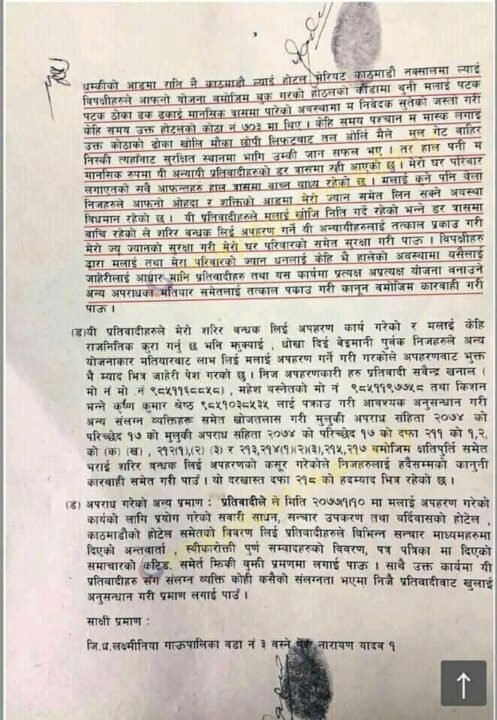 धम्कीको आडमा राति नै काठमाडौ ल्याई होटल मेरियट काठमाडौ नक्सालमा ल्याई
विपक्षीहरुले आफनो योजना वमोजिम बुक गरको होठलको कोठामा थुनी मलाई पटक
पटक ठोका ढक ढकाई मानसिक त्रासमा पारेको अवस्थामा म निवेदक सुतेको जस्ता गरी
केहि समय उक्त होटलको कोठा नं ७०३ मा थिए । केहि समय पश्चान म मास्क लगाइ
उक्त कोठाको ढोका खोलि मौका छोपी लिफ्टवाट तल ओर्लि मैले मुल गेट वाहिर
निस्की त्यहावाट सुरक्षित स्थानमा भागि उम्की जान सफल भए । तर हाल पनी म
मानसिक रुपमा यी अन्यायी प्रतिवादीहरुको डर त्रासमा रही आएकी छ । मेरो घर परिवार
लगाएतको सवै आफन्तहरु हाल त्रासमा वाच्न वाध्य रहेको छ । मलाई कुनै पनि वेला
निजहरुले आफनो ओहदा र शक्तिको आडमा मेरो ज्यान समेत लिन सक्ने अवस्था
विधमान रहेको छ । यी प्रतिवादीहरुले मलाई खोजि निति गर्दै रहेको भन्ने डर त्रासमा
वाचि रहेको ले शरिर वन्धक लिई अपहरण गर्ने यी अन्यायीहरुलाई तत्काल प्रकाउ गरी
मेरो ज्यू ज्यानको सुरक्षा गरी मेरो घर परिवारको समेत सुरक्षा गरी पाऊ । विपक्षीहरु
द्वारा मलाई तथा मेरा परिवारको ज्यान धनलाई केहि भै हालेको अवस्थामा यसैलाई
जाहेरीलाई आधार मानि प्रतिवादीहरु तथा यस कार्यमा प्रत्यक्ष अप्रत्यक्ष योजना वनाउने
अन्य अपराधको मतियार समेतलाई तत्काल पकाउ गरी कानून वमोजिम कारवाही गरी
पाऊ ।
(ड)यी प्रतिवादीहरुले मेरो शरिर वन्धक लिई अपहरण कार्य गरेको र मलाई केहि
राजनितिक कुरा गर्नु छ भनि झुक्याई , धोखा दिई वेइमानी पुर्वक निजहरुले अन्य
योजनाकार मतियारवाट लाभ लिई मलाई अपहरण गर्ने गरी गरकोले अपहरणवाट भुक्त
भै म्याद भित्र जाहेरी पेश गरको छ । निज अपहरणकारी हरु प्रतिवादी सर्वेन्द्र खनाल (
मो नं मो .नं ९८५११६८८५८) , महेश वस्नेतको मो नं ९८५११९७७५८ तथा किशान
भन्ने कृष्ण कुमार श्रेष्ठ ९८५१०३८५३५ लाई पक्राउ गरी आवश्यक अनुसन्धान गरी
अन्य संलग्न व्यक्तिहरू समेत खोजतलास गरी मुलुकी अपराध सहिता २०७४ को
परिच्छेद १७ को मुलुकी अपराध सहिता २०७४ को परिच्छेद १७ को दफा २११ को १,२,
को (क) (ख) , २१२(१),(२) (३) र २१३,२१४(१)(२)(३),२१५,२१७ वमोजिम क्षतिपुर्ति समेत
भराई शरिर वन्धक लिई अपहरणको कसूर गरेकोले निजहरुलाई हदैसम्मको कानूनी
कारवाही समेत गरी पाउँ । यो दरखास्त दफा २१८ को हदम्याद भित्र रहेको छ ।
(ड) अपराध गरेको अन्य प्रमाण : प्रतिवादीले ले मिति २०७७।१।१० मा मलाई अपहरण गरेको
कार्यको लागि प्रयोग गरेको सवारी साधन, सन्चार उपकरण तथा वर्दिवासको होटेल ,
काठमाडौको होटेल समेतको विवरण लिई प्रतिवादीहरुले विभिन्न सन्चार माध्यमहरुमा
दिएको अन्तवार्ता , स्वीकारोक्ती पुर्ण सम्वादहरुको विवरण, पत्र पत्रिका मा दिएको
समाचारको कटिङ समेत झिकी वुझी प्रमणमा लगाई पाऊ । साथै उक्त कार्यमा यी
प्रतिवादीहरु संग संलग्न व्यक्ति कोही कसैको संलग्नता भएमा निजै प्रतिवादीवाट खुलाई
अनुसन्धान गरी प्रमाण लगाई पाउँ ।
साक्षी प्रमाण :
जि.ध.लक्ष्मीनिया गाऊपालिका वडा नं ३ वस्ने नारायण यादव १